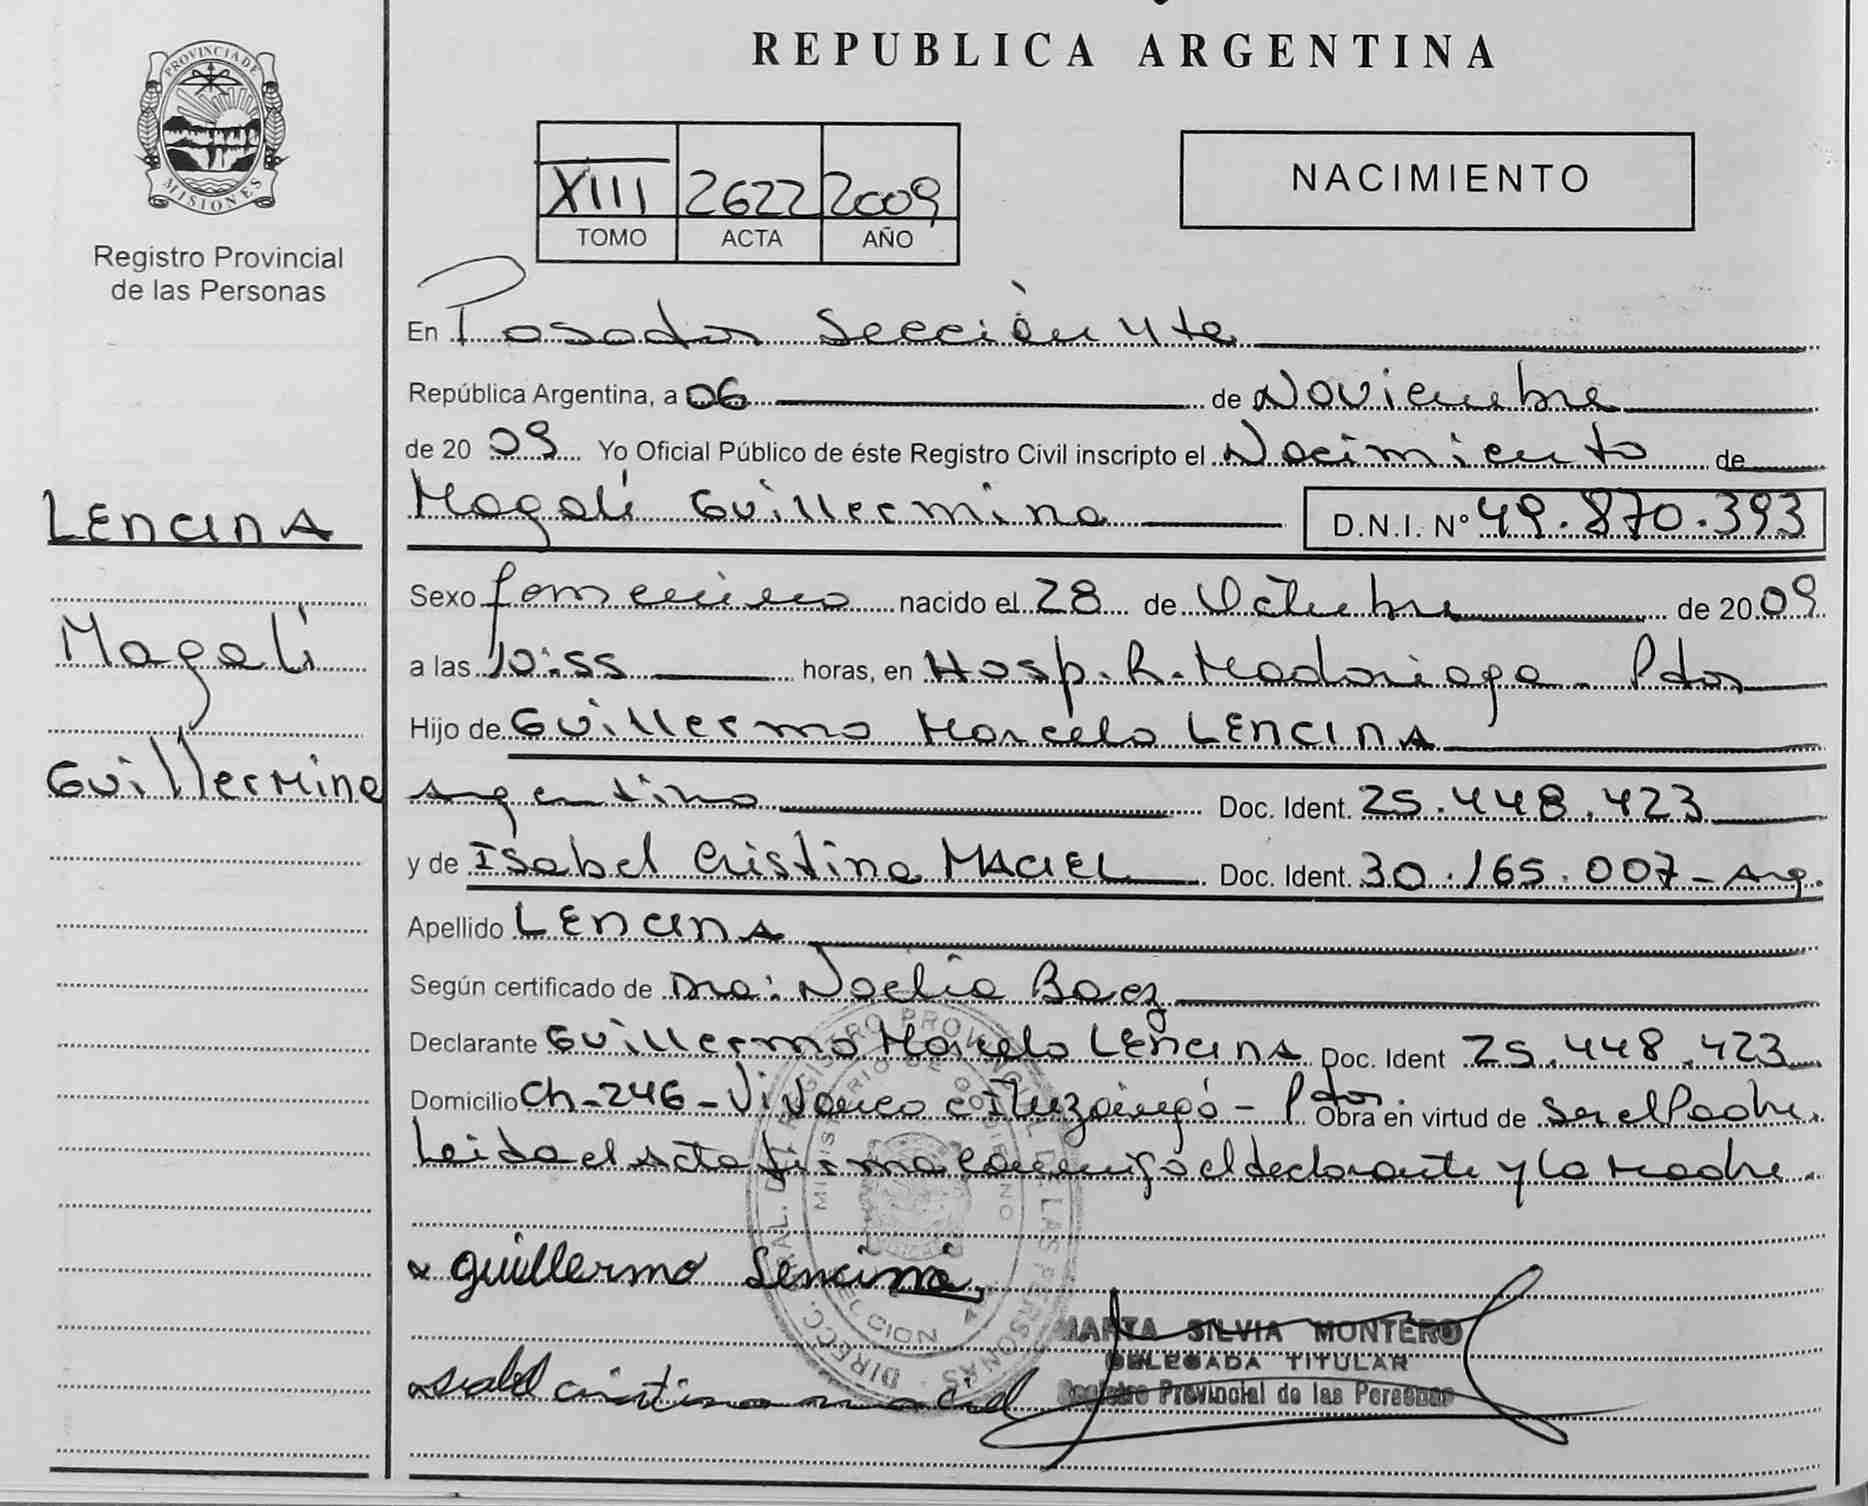 REPUBLICA ARGENTINA
PROVINCIA DE MISIONES
Registro Provincial
de las Personas
XIII 2622 2009
TOMO ACTA AÑO
NACIMIENTO
En Posadas Sección 4ta
República Argentina, a 06 de Noviembre
de 20 09 Yo Oficial Público de éste Registro Civil inscripto el Nacimiento de
Magalí Guillermina D.N.I. Nº 49.870.393
LENCINA
Magalí
Guillermina
Sexo femenino nacido el 28 de Octubre de 20 09
a las 10:55 horas, en Hosp. R. Madariaga - Pdas
Hijo de Guillermo Marcelo LENCINA
Argentino Doc. Ident. 25.448.423
y de Isabel Cristina MACIEL Doc. Ident. 30.165.007 - Arg.
Apellido LENCINA
Según certificado de Dra: Noelia Baez
Declarante Guillermo Marcelo LENCINA Doc. Ident 25.448.423
Domicilio Ch-246- Vivanco e Ituzaingó - Pdas. Obra en virtud de Ser el Padre.
Leida el acta firma conmigo el declarante y la Madre.
Guillermo Lencina
Isabel Cristina Maciel
MARTA SILVIA MONTERO
DELEGADA TITULAR
Registro Provincial de las Personas
DIRECC. GRAL. DEL REGISTRO PROVINCIAL DE LAS PERSONAS
MINISTERIO DE GOBIERNO